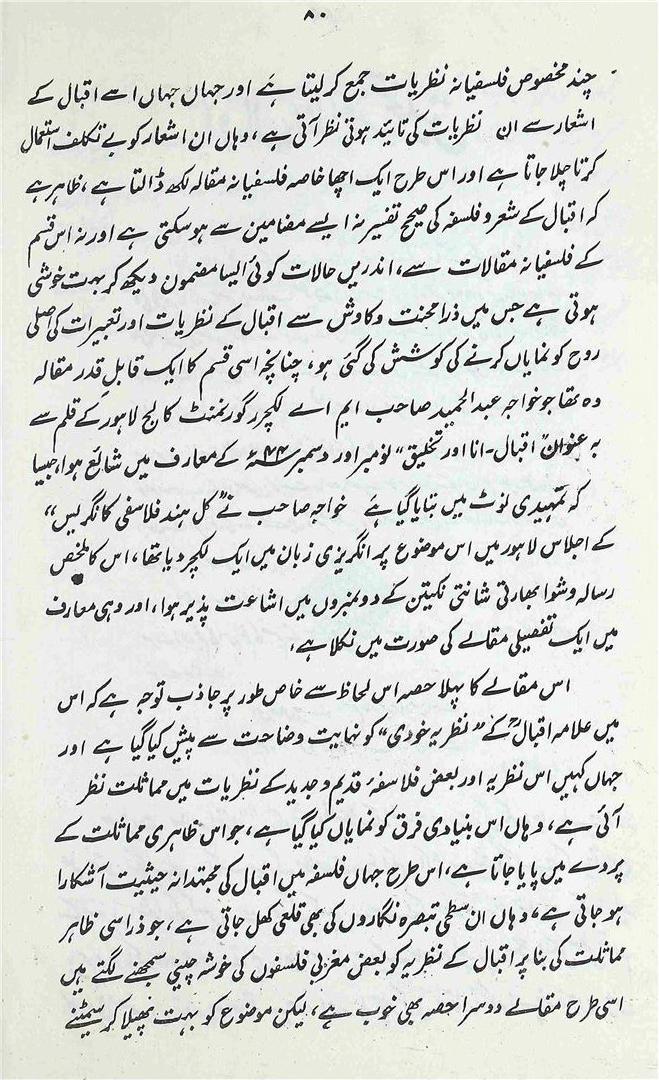 ۸۰
چند مخصوص فلسفیانہ نظریات جمع کرلیتا ہے اور جہاں جہاں اسے اقبال کے
اشعار سے ان نظریات کی تائید ہوتی نظر آتی ہے، وہاں ان اشعار کو بے تکلف استعمال
کرتا چلا جاتا ہے اور اس طرح ایک اچھا خاصہ فلسفیانہ مقالہ لکھ ڈالتا ہے، ظاہر ہے
کہ اقبال کے شعر و فلسفہ کی صحیح تفسیر نہ ایسے مضامین سے ہو سکتی ہے اور نہ اس قسم
کے فلسفیانہ مقالات سے، اندریں حالات کوئی ایسا مضمون دیکھ کر بہت خوشی
ہوتی ہے جس میں ذرا محنت و کاوش سے اقبال کے نظریات اور تعبیرات کی اصلی
روح کو نمایاں کرنے کی کوشش کی گئی ہو، چنانچہ اسی قسم کا ایک قابلِ قدر مقالہ
وہ تھا جو خواجہ عبدالحمید صاحب ایم اے لکچرر گورنمنٹ کالج لاہور کے قلم سے
بہ عنوان "اقبال۔انا اور تخلیق" نومبر اور دسمبر ۴۴ء کے معارف میں شائع ہوا، جیسا
کہ تمہیدی نوٹ میں بتایا گیا ہے خواجہ صاحب نے "کل ہند فلاسفی کانگریس"
کے اجلاس لاہور میں اس موضوع پر انگریزی زبان میں ایک لکچر دیا تھا، اس کا ملخص
رسالہ وشوا بھارتی شانتی نکیتن کے دو نمبروں میں اشاعت پذیر ہوا، اور وہی معارف
میں ایک تفصیلی مقالے کی صورت میں نکلا ہے،
اس مقالے کا پہلا حصہ اس لحاظ سے خاص طور پر جاذب توجہ ہے کہ اس
میں علامہ اقبالؒ کے "نظریہ خودی" کو نہایت وضاحت سے پیش کیا گیا ہے اور
جہاں کہیں اس نظریہ اور بعض فلاسفۂ قدیم و جدید کے نظریات میں مماثلت نظر
آئی ہے، وہاں اس بنیادی فرق کو نمایاں کیا گیا ہے، جو اس ظاہری مماثلت کے
پردے میں پایا جاتا ہے، اس طرح جہاں فلسفہ میں اقبال کی مجتہدانہ حیثیت آشکارا
ہو جاتی ہے، وہاں ان سطحی تبصرہ نگاروں کی بھی قلعی کھل جاتی ہے، جو ذرا سی ظاہر
مماثلت کی بنا پر اقبال کے نظریہ کو بعض مغربی فلسفوں کی خوشہ چینی سمجھنے لگتے ہیں
اسی طرح مقالے دوسرا حصہ بھی خوب ہے، لیکن موضوع کو بہت پھیلا کر سمیٹنے